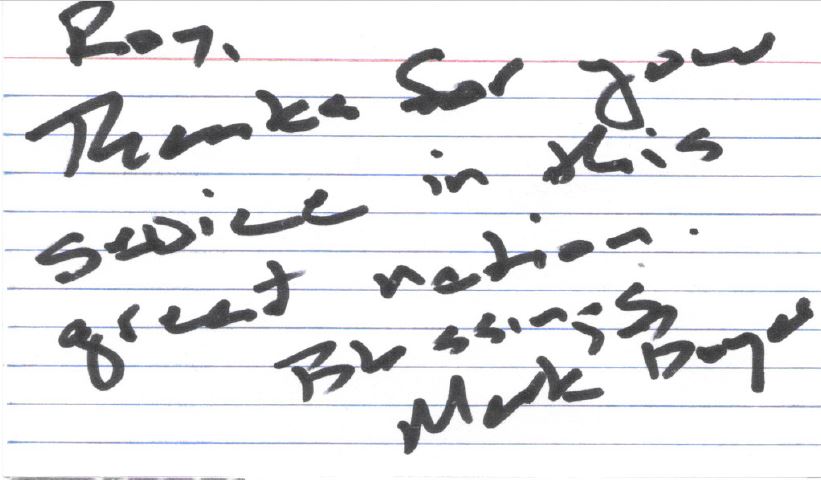 Roy,
Thanks for your
service in this
great nation.
Blessings
Mark